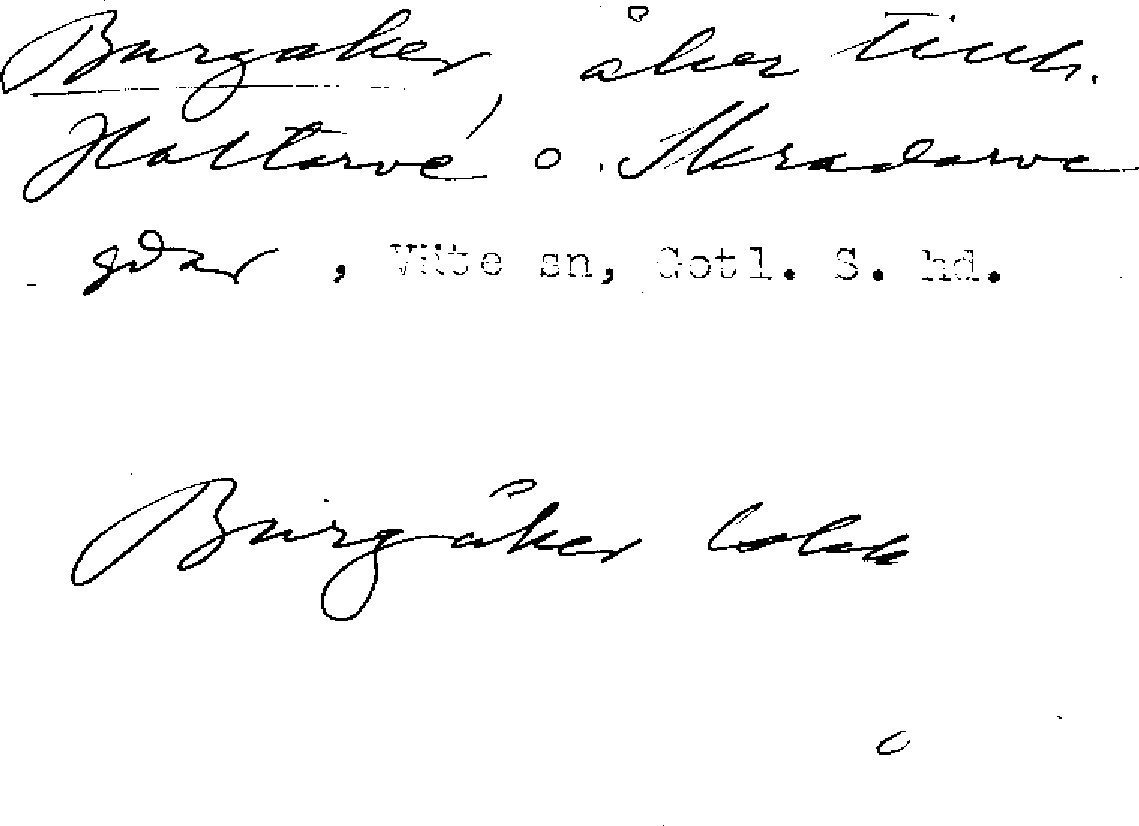 Burgåker, åker tillh.
Hallarve o. Skradarve
gdar, Väte sn, Gotl. S. hd.
Burgåker